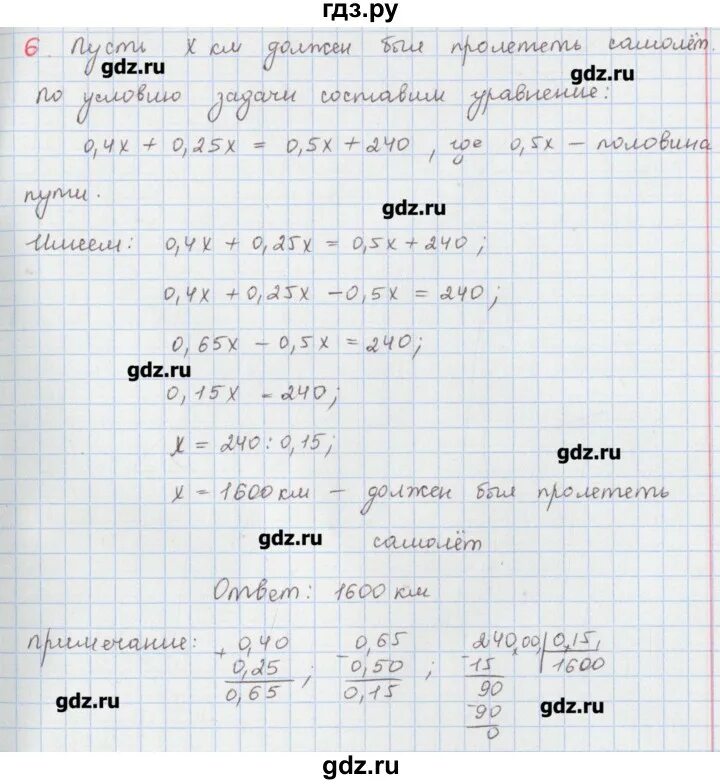 гдз.ру
6. Пусть х км должен был пролететь самолёт.
gdz.ru
gdz.ru
По условию задачи составим уравнение:
0,4х + 0,25х = 0,5х + 240 , где 0,5х – половина
пути.
gdz.ru
Имеем: 0,4х + 0,25х = 0,5х + 240 ;
0,4х + 0,25х – 0,5х = 240;
0,65х – 0,5х = 240;
gdz.ru
0,15х = 240;
х = 240 : 0,15;
gdz.ru
х = 1600 км – должен был пролететь
gdz.ru
самолёт
Ответ: 1600 км
примечание: + 0,40 – 0,65 240,00, 0,15,
0,25 ; 0,50 ; – 15 1600
0,65 0,15 90
gdz.ru
– 90
gdz.ru
0
gdz.ru